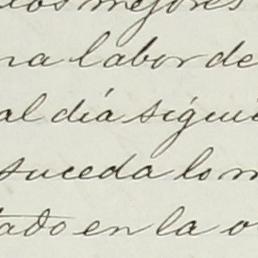 los mejores
na labor de
al día sigui
suceda lo m
tado en la o